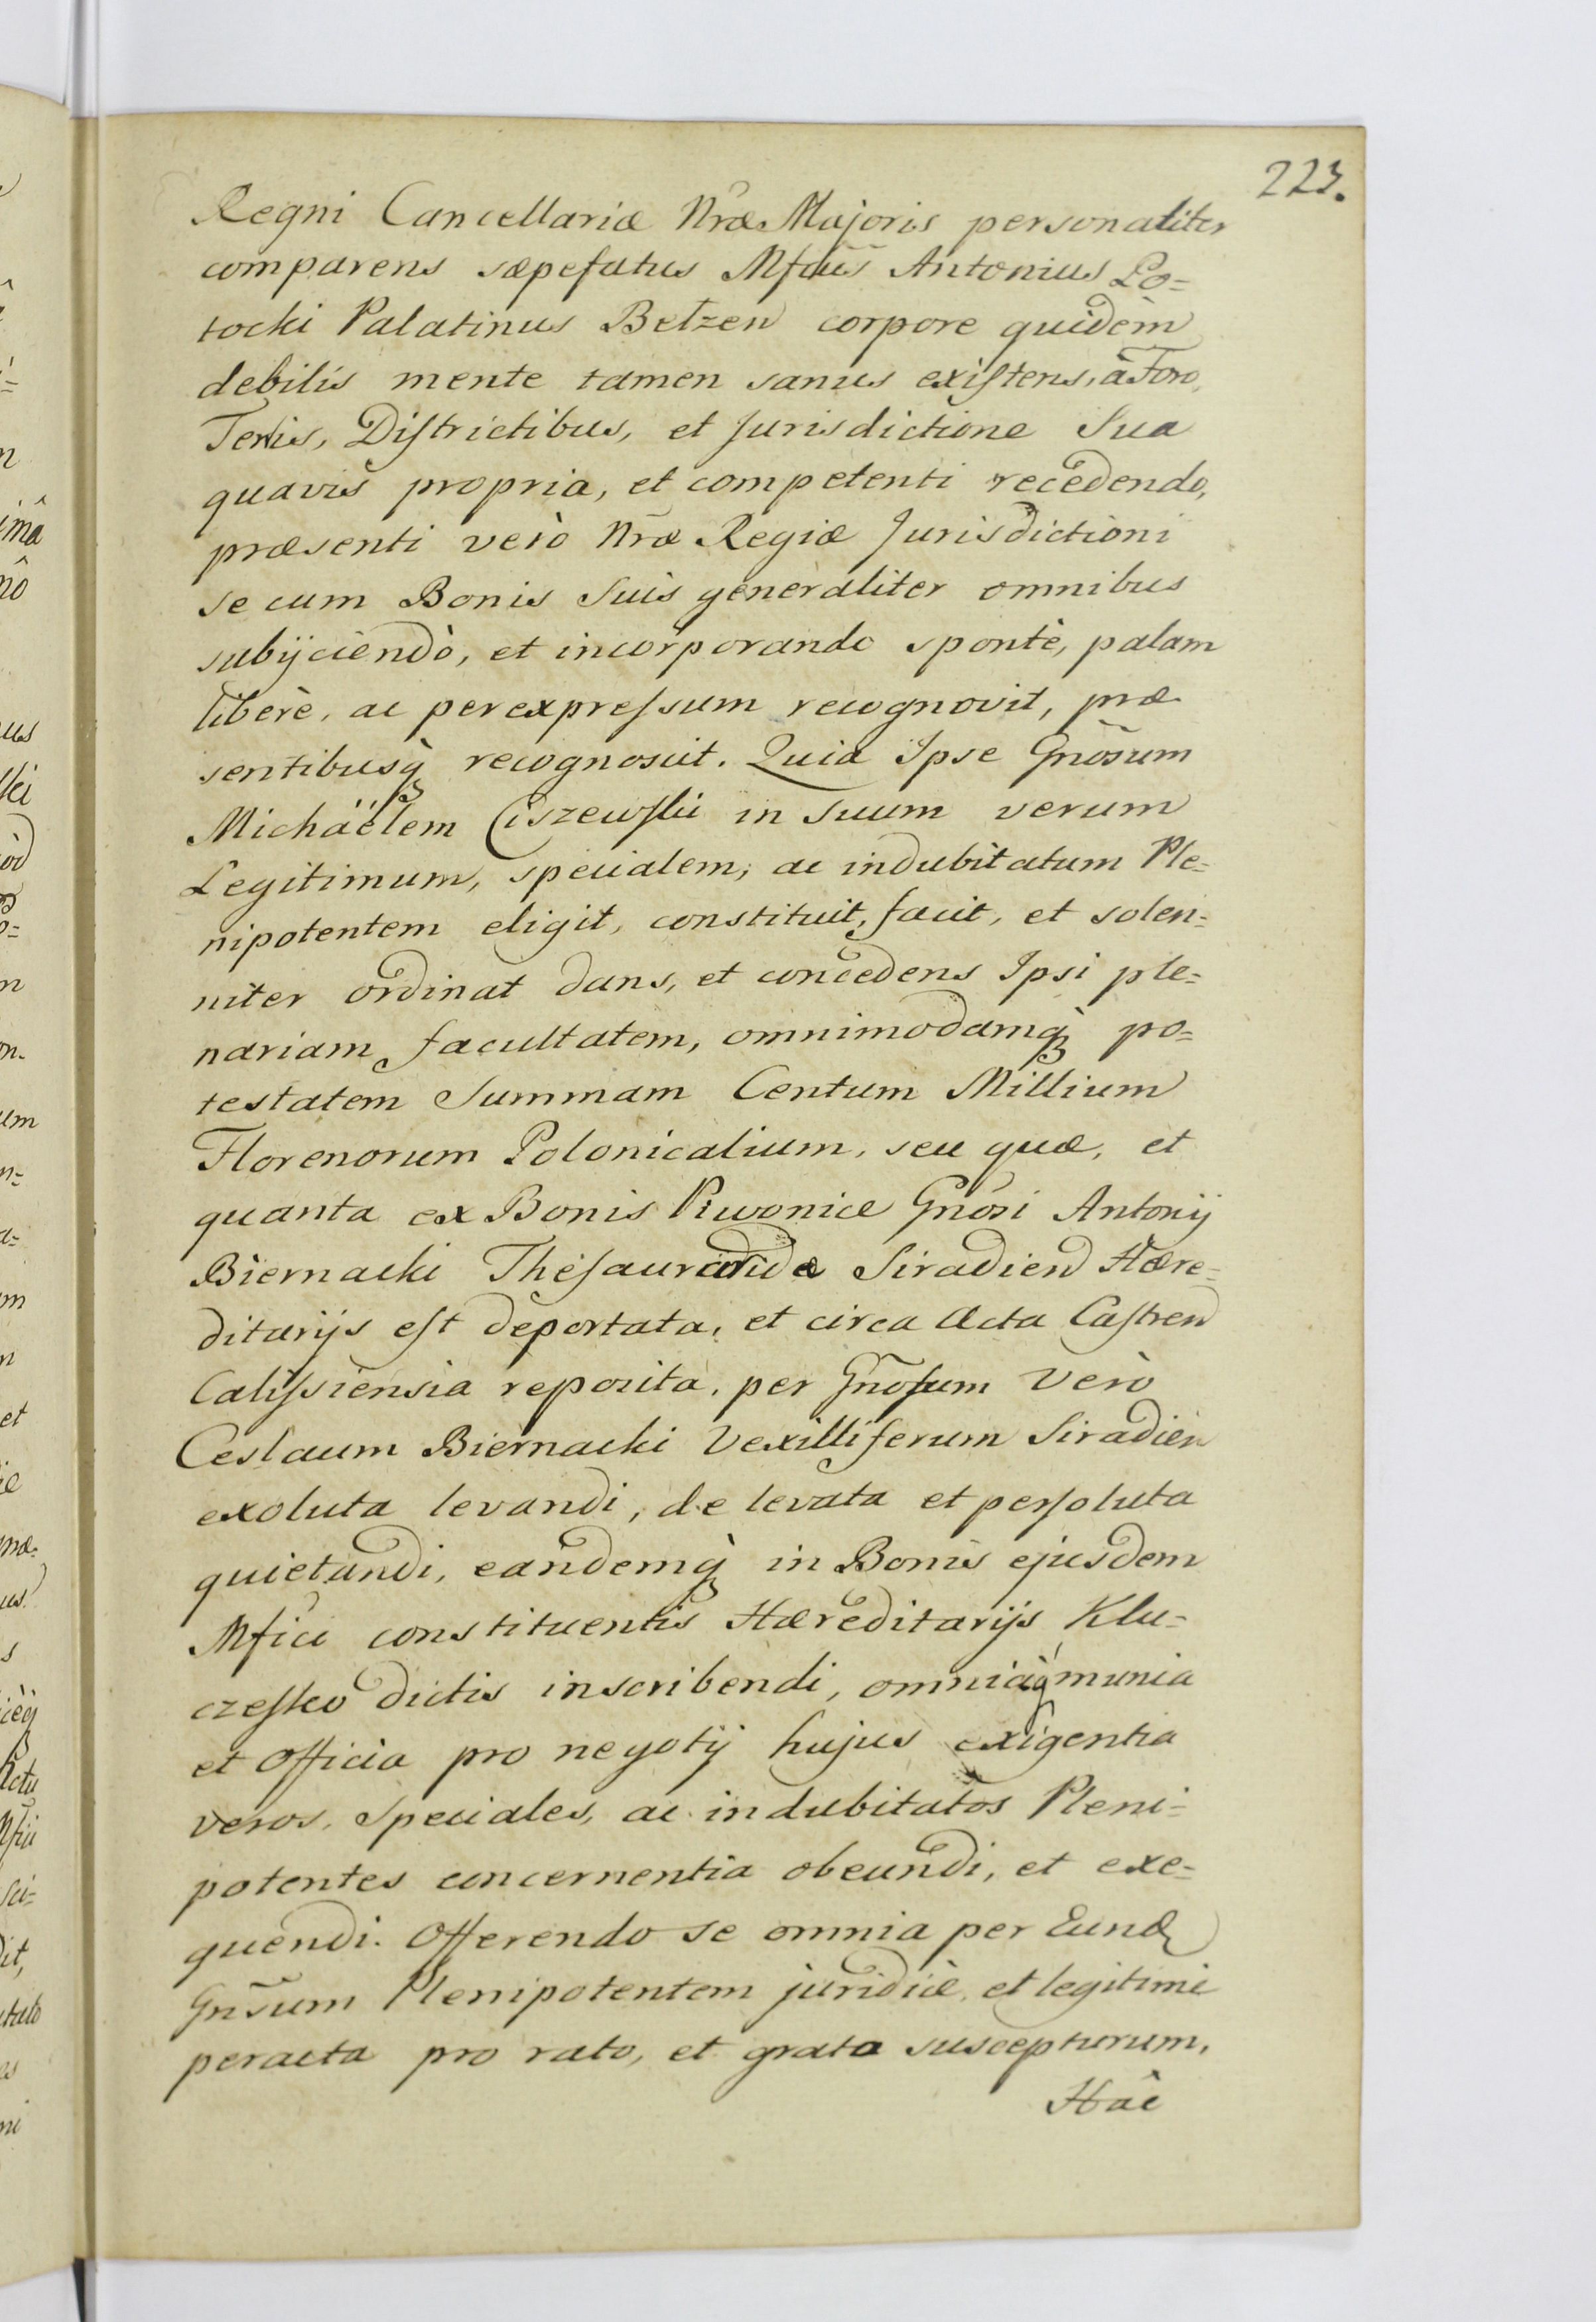 223.
Regni Cancellariæ Nr̃æ Majoris personaliter
comparens sæpefatus Mfcũs Antonius Po=
tocki Palatinus Betzen corpore quidèm
debilis mente tamen sanus existens, à Foro,
Terris, Districtibus, et Jurisdictione Sua
quavis propria, et competenti recedendo,
præsenti verò Nr̃æ Regiæ Jurisdictioni
se cum Bonis Suis generaliter omnibus
subijciendò, et incorporando spontè, palam
liberè, ac per expressum recognovit, præ
sentibusq̀ recognoscit. Quia Ipse Gnõsum
Michäèlem Ciszewski in Suum verum
Legitimum, specialem, ac indubitatum Ple=
nipotentem eligit, constituit, facit, et solen=
niter ordinat dans, et concedens Ipsi ple=
nariam facultatem, omnimodamq̀ po=
testatem Summam Centum Millium
Florenorum Polonicalium, seu quæ, et
quanta ex Bonis Piwonice Gnõsi Antonij
Biernacki Thesauraridæ Siradien Hære=
ditarijs est deportata, et circa Acta Castren
Calissiensia reposita, per Gnõsum Verò
Ceslaum Biernacki Vexilliferum Siradien
exoluta levandi, de levata et persoluta
quietandi, eandemq̀ in Bonis ejusdem
Mfici constituentis Hæreditarijs Klu=
czesko dictis inscribendi, omniaq̀ munia
et Officia pro negotij hujus exigentia
veros, Speciales, ac indubitatos Pleni=
potentes concernentia obeundi, et exe=
quendi. Offerendo se omnia per Eund
Gnsũm Plenipotentem juridicè, et legitimè
peracta pro rato, et grata suscepturum,
Hâc